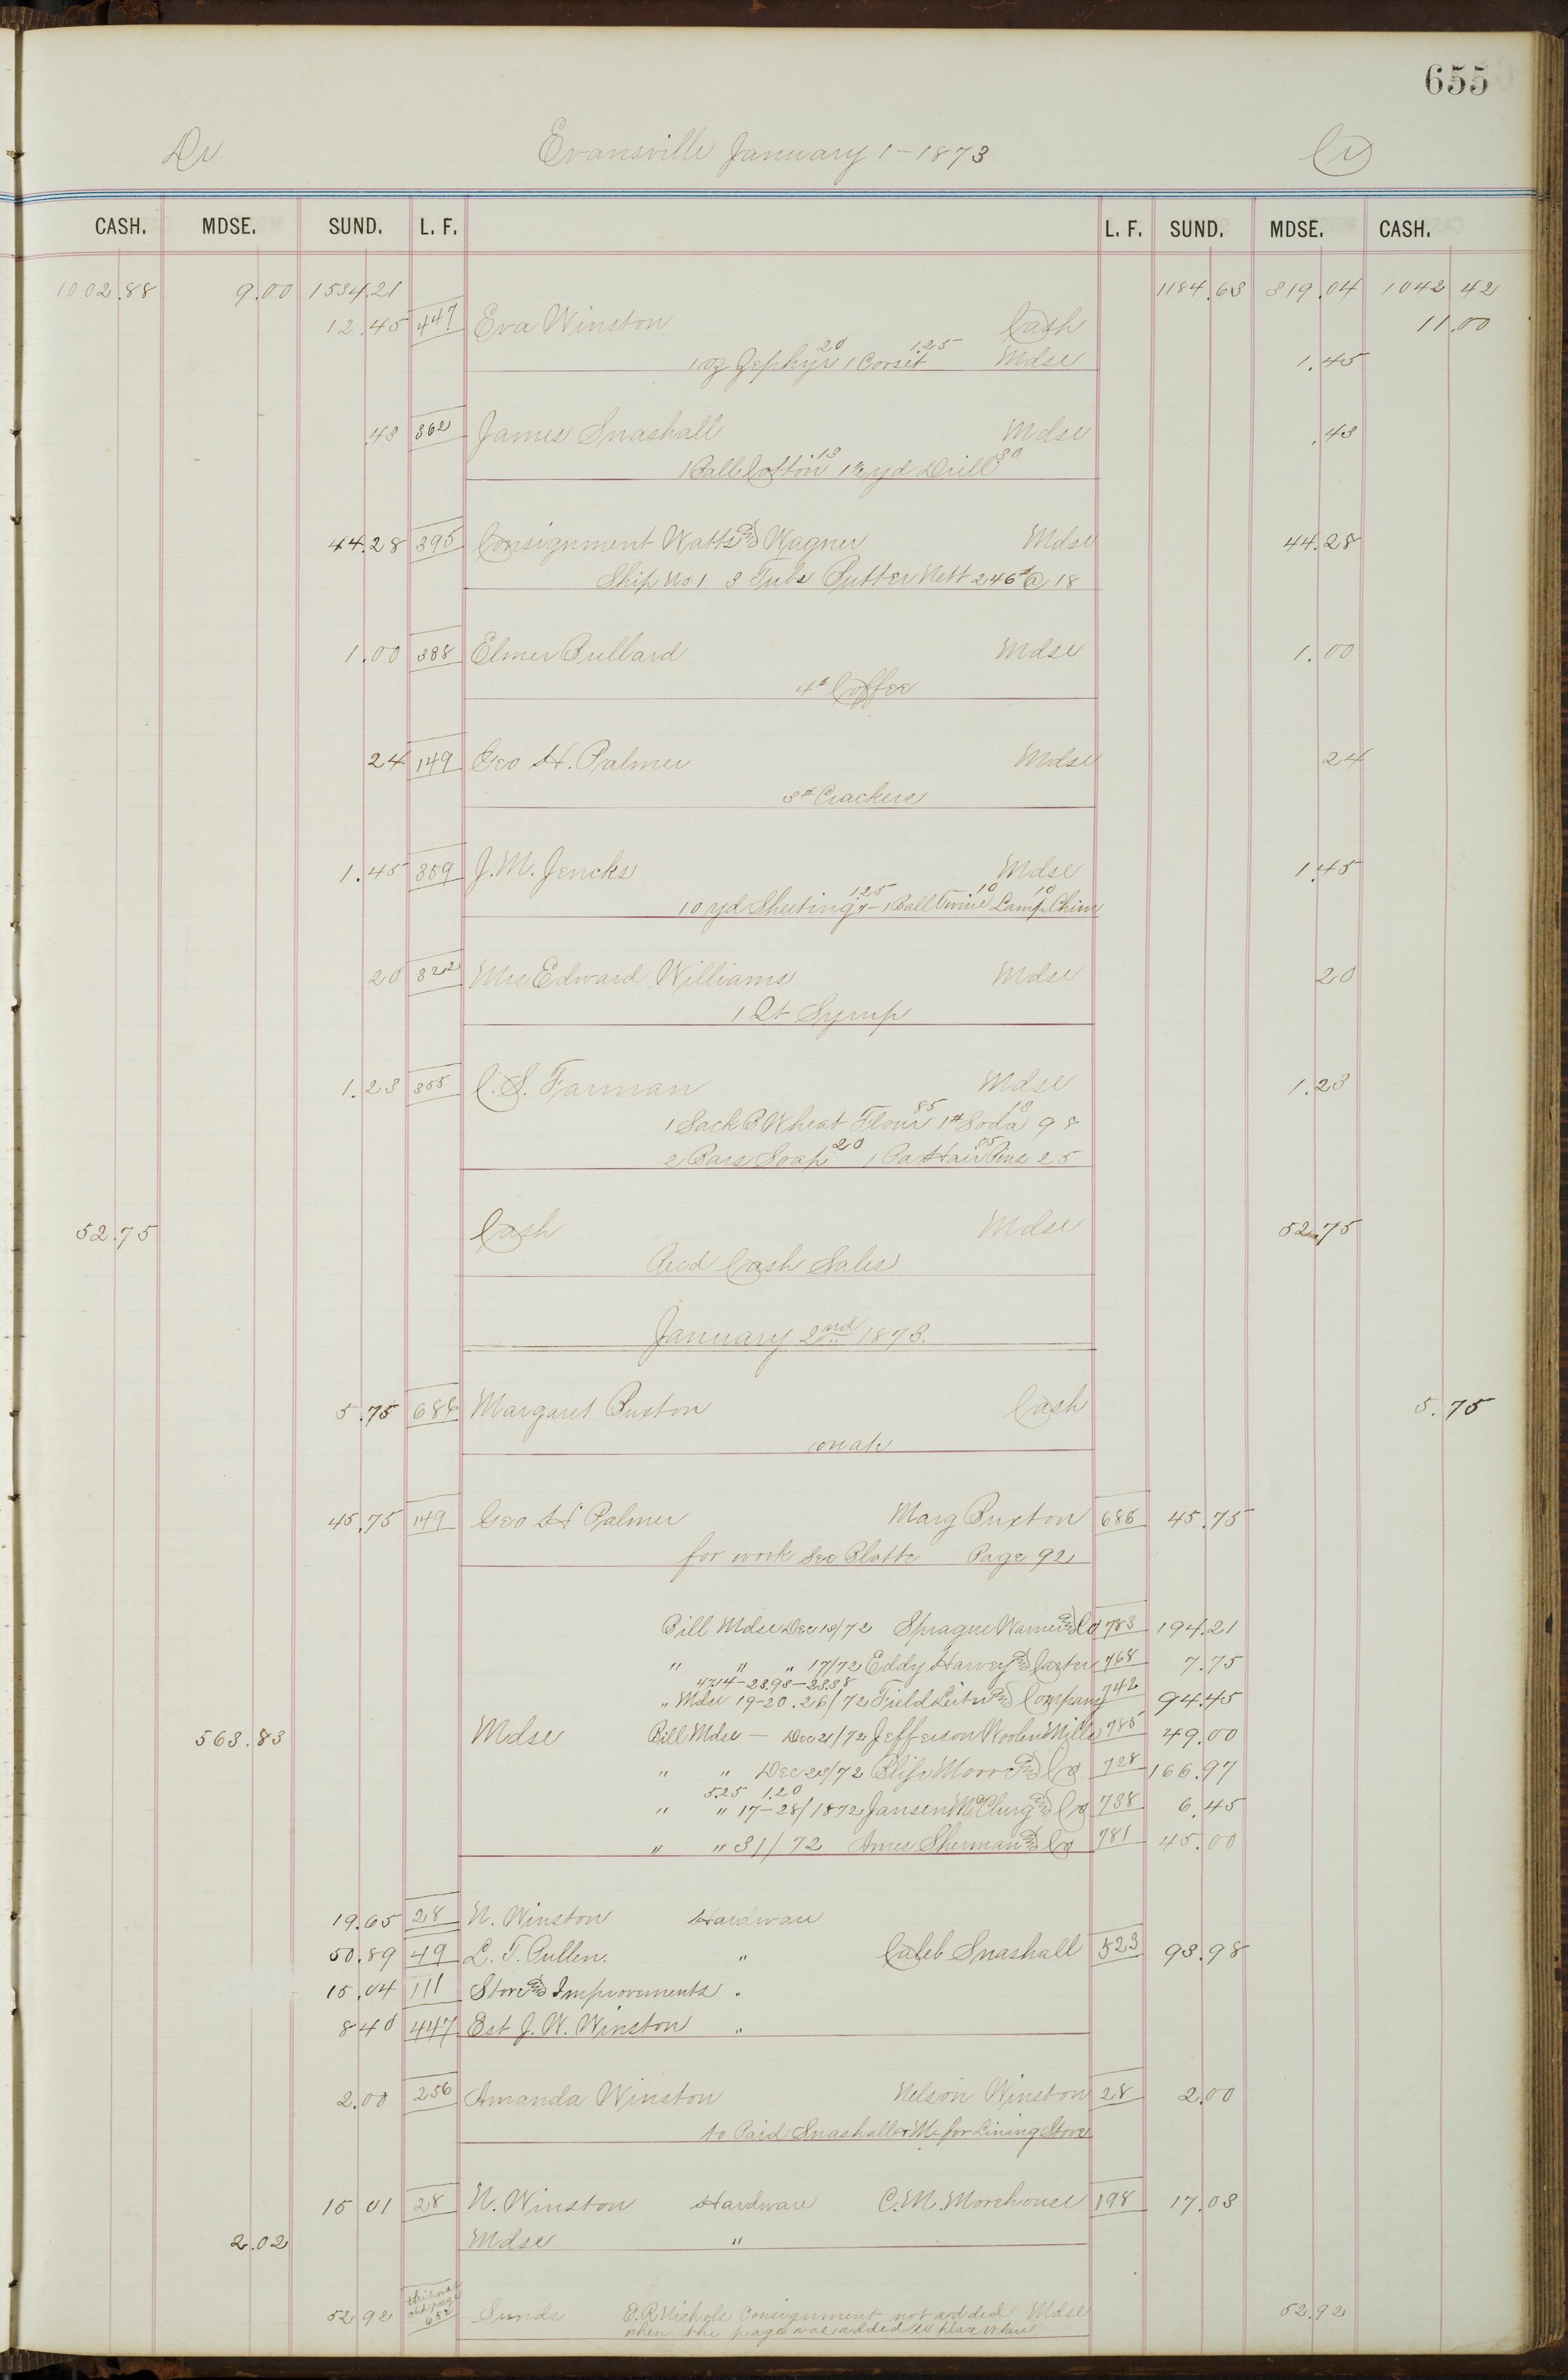 655
Dr Evansville January 1-1873 Cr
CASH. MDSE. SUND. L. F. L. F. SUND. MDSE. CASH.
1002.88 9.00 1534.21 1184.63 319.04 1042 42
12.45 447 Eva Winston Cash 11.00
1 oz Zephyr 20 1 Corset 125 Mdse 1.45
.43 362 James Snashall Mdse .43
1 Ball Cotton .13 yd Drill 30
44.28 395 Consignment Watts and Wagner Mdse 44.28
Ship No 1 3 Tubs Butter Nett 246# @ 18
1.00 388 Elmer Bullard Mdse 1.00
4# Coffee
24 149 Geo H. Palmer Mdse 24
3# Crackers
1.45 359 J. M. Jencks Mdse 1.45
10 yd Sheeting 125 1 Ball Twine 10 Lamp Chim 10
20 322 Mrs Edward Williams Mdse 20
1 Qt Syrup
1.23 355 C. S. Farman Mdse 1.23
1 Sack B Wheat Flour 85 1# Soda 13 98
2 Bars Soap 20 1 Pa Hair Pins 05 25
52.75 Cash Mdse 52.75
Recd Cash Sales
January 2nd 1873.
5.75 688 Margaret Buxton Cash 5.75
on a/c
45.75 149 Geo H Palmer Marg Buxton 686 45.75
for work See Blotte Page 92
Bill Mdse Dec /72 Sprague Warner and Co 783 194.21
" " " 17/72 Eddy Harvey and Carter 768 7.75
47.14-23.93-23.38
" Mdse 19-20.26/72 Field Leiter and Company 742 94.45
563.83 Mdse Bill Mdse - Dec 21/72 Jefferson Woolen Mills 785 49.00
" " Dec /72 Moore and Co 728 166.97
5.25 1.20
" " 17-28/1872 Jansen McClurg and Co 738 6.45
" " 31/72 Ames Sherman and Co 781 45.00
19.65 28 N. Winston Hardware
50.89 49 L. T. Pullen. " Caleb Snashall 523 93.98
15.04 111 Store and Improvements "
8 40 447 Est J. W. Winston "
2.00 256 Amanda Winston Nelson Winston 28 2.00
to Paid Snashall & M for Lining Stove
15 01 28 N. Winston Hardware C. M. Morehouse 198 17.03
2.02 Mdse "
52 92 this was old page Sunds E. R. Nichols Consignment not added Mdse 52.92
when the page was added